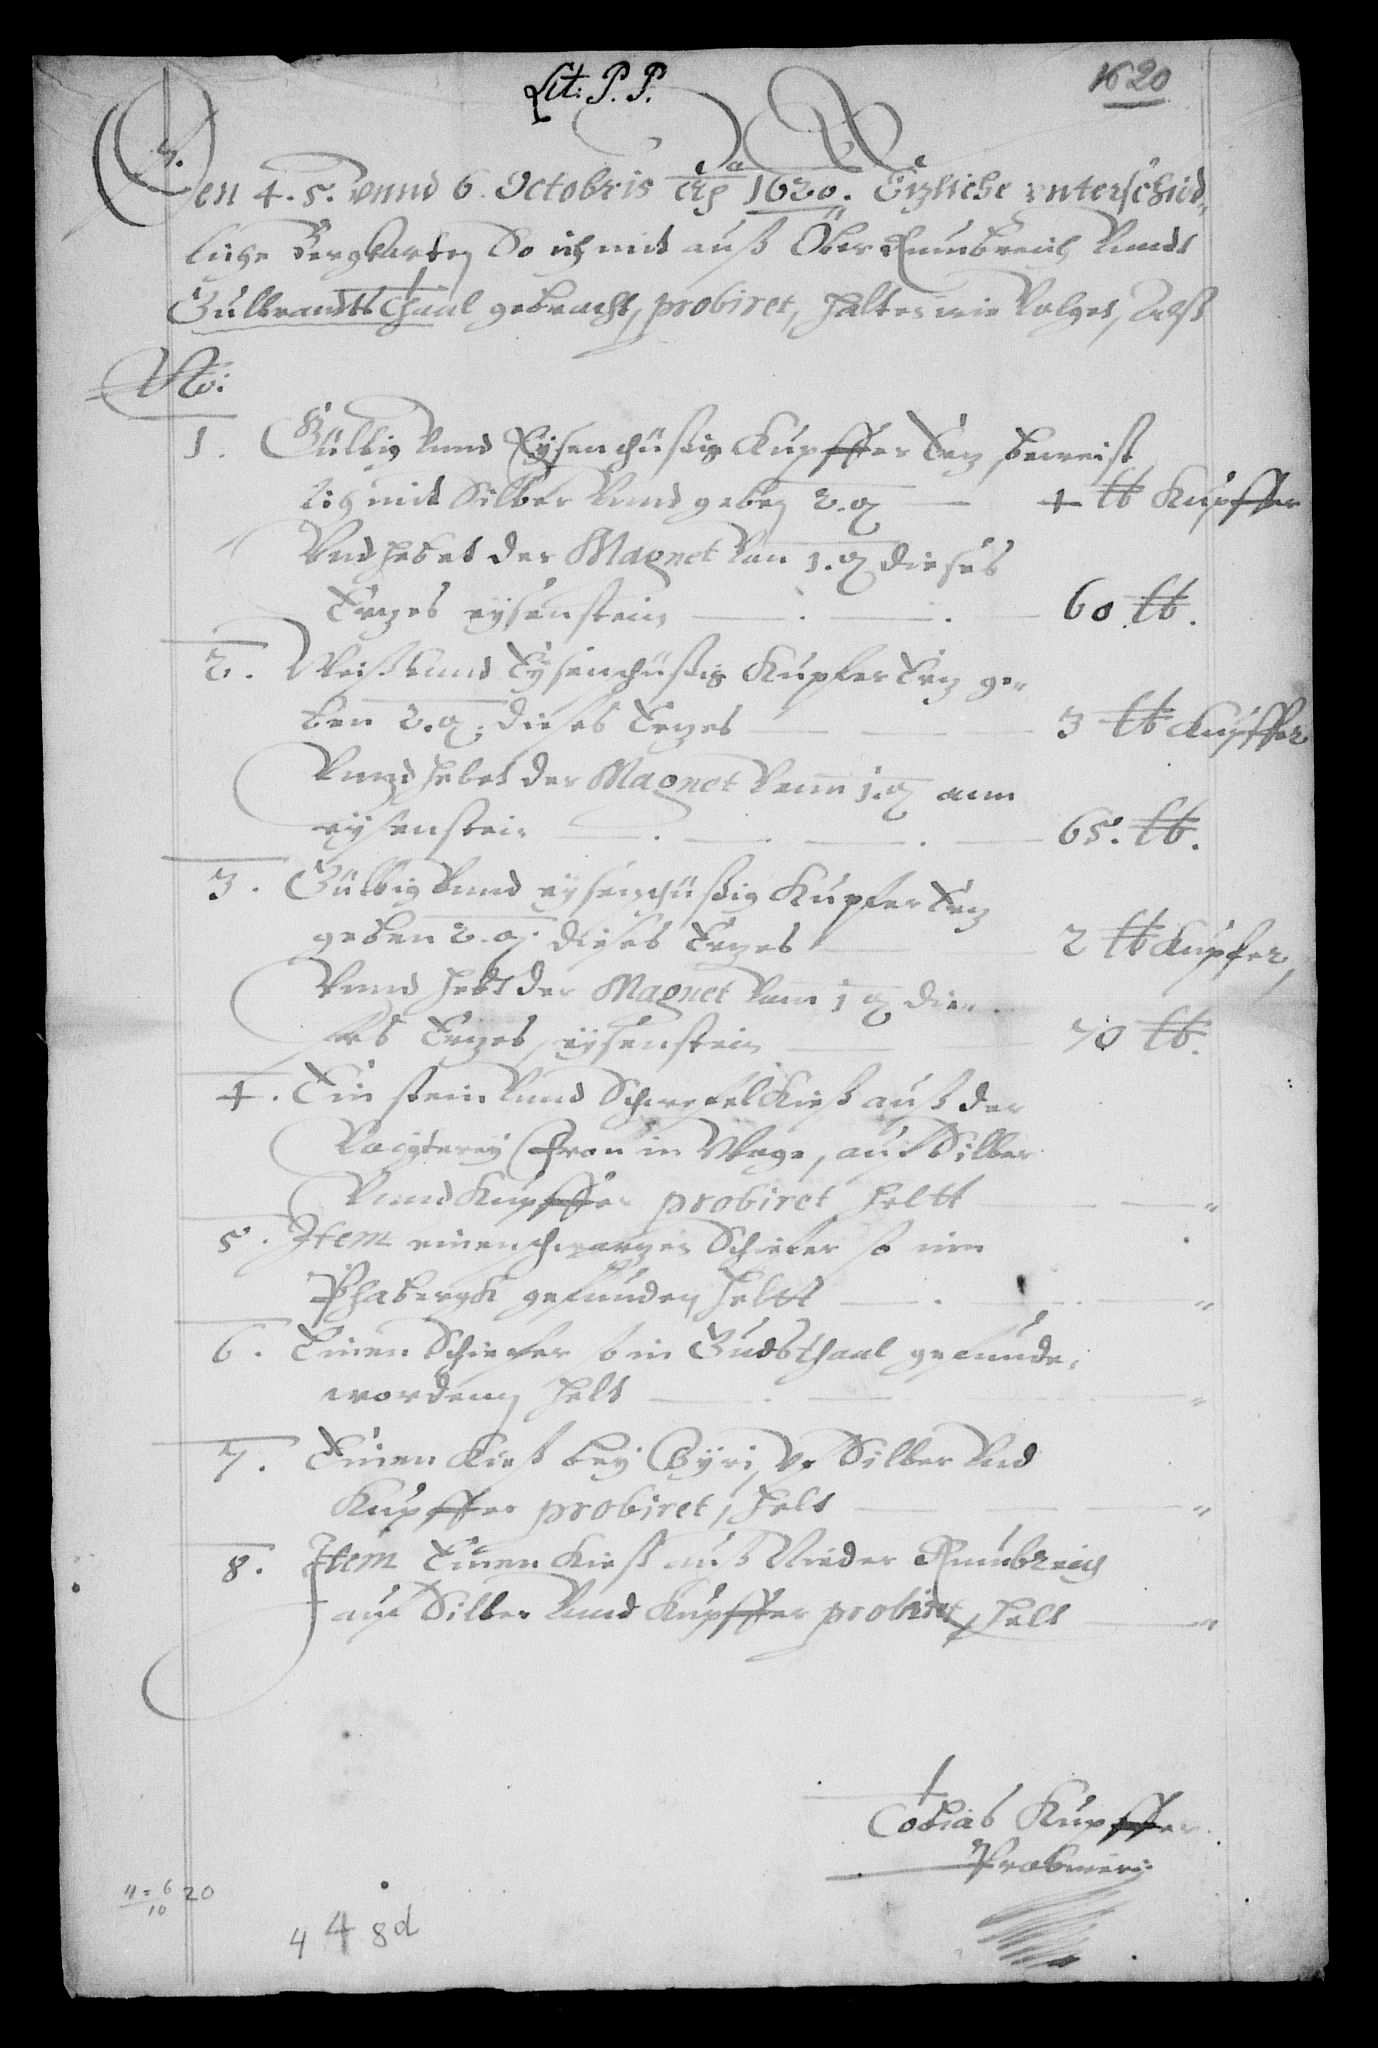 Lit: P. P.
1620
Den 4. 5. vnnd 6. Octobris Aō 1620. Etzliche vnterschied„
liche Bergkarten So ich mit auß Ober Rumbreich Vnndt
Gulbrandts Thaal gebracht, probiret, halten wie Volget, Alß
No:
1. Gültig Vnnd Eysenschüßig Kupffer Ertz, beweist
sich mit Silber Vnnd geben 2. q — 4 ℔ Kupffer
Vnd hebet der Magnet Van 1. q dieses
Ertzes eysenstein — . — . — 60 ℔.
2. Weiß Vnnd Eysenschüßig Kupfer Ertz ge„
ben 2. q. dieses Ertzes — 3 ℔ Kupffer
Vnnd hebet der Magnet Vann 1. q ann
eysenstein — . — . — 65. ℔.
3. Gültig Vnnd eysenschüßig Kupfer Ertz
geben 2. q. dieses Ertzes — 2 ℔ Kupfer,
Vnnd hebt der Magnet Vann 1 q die„
ses Ertzes, eysenstein — 70 ℔.
4. Ein stein Vnnd Schwefel Kieß auß der
Voigterey Cron in Wage, auf Silber
Vnnd Kupffer probiret heltt — „
5. Item einen schwartzen Schiefer so im
gefunden heltt — . — . — „
6. Einen Schiefer so in Gudsthaal gefunde.
worden, helt — . — „
7. Einen Kieß bey Silber Vnd
Kupffer probiret, helt — „
8. Item Einen Kieß auß Nieder Rumbreich
auf Silber Vnnd Kupffer probiret, helt — „
Tobias Kupffer.
Probierer
4 = 6/10 20
4 4 8d